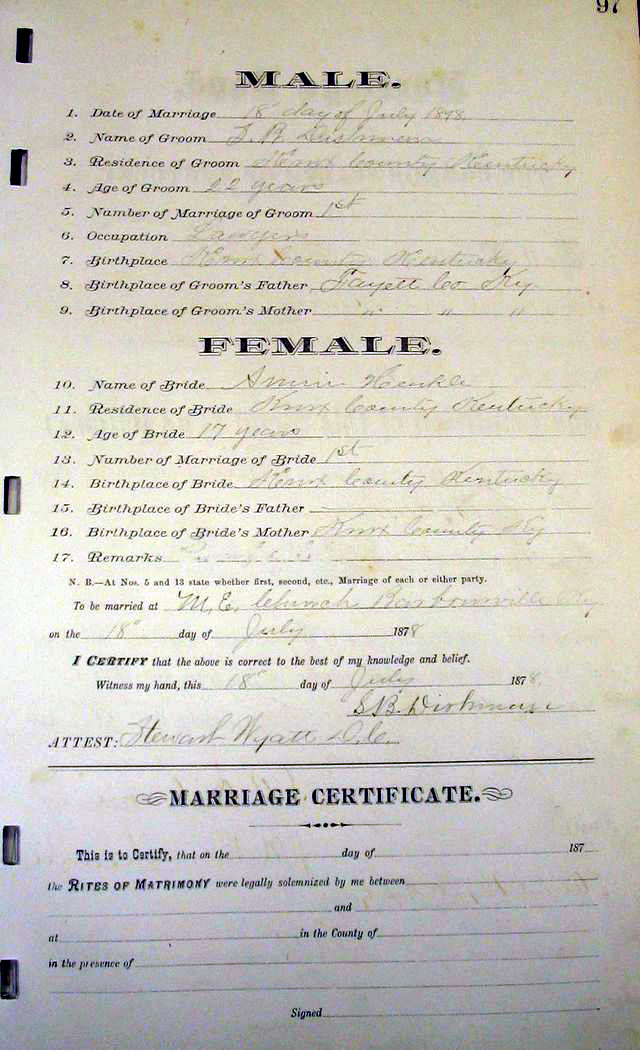 97
MALE.
1. Date of Marriage 18" day of July 1878
2. Name of Groom S. B. Dishman
3. Residence of Groom Knox County Kentucky
4. Age of Groom 22 years
5. Number of Marriage of Groom 1st
6. Occupation Lawyer
7. Birthplace Knox County Kentucky
8. Birthplace of Groom's Father Fayett Co Ky
9. Birthplace of Groom's Mother " " "
FEMALE.
10. Name of Bride Annie Henkle
11. Residence of Bride Knox County Kentucky
12. Age of Bride 17 years
13. Number of Marriage of Bride 1st
14. Birthplace of Bride Knox County Kentucky
15. Birthplace of Bride's Father
16. Birthplace of Bride's Mother Knox County Ky
17. Remarks
N. B.—At Nos. 5 and 13 state whether first, second, etc., Marriage of each or either party.
To be married at M. E. Church Barbourville Ky
on the 18" day of July 1878
I CERTIFY that the above is correct to the best of my knowledge and belief.
Witness my hand, this 18" day of July 1878.
S. B. Dishman
ATTEST: Stewart Wyatt D. C.
MARRIAGE CERTIFICATE.
This is to Certify, that on the day of 187
the RITES OF MATRIMONY were legally solemnized by me between
and
at in the County of
in the presence of
Signed